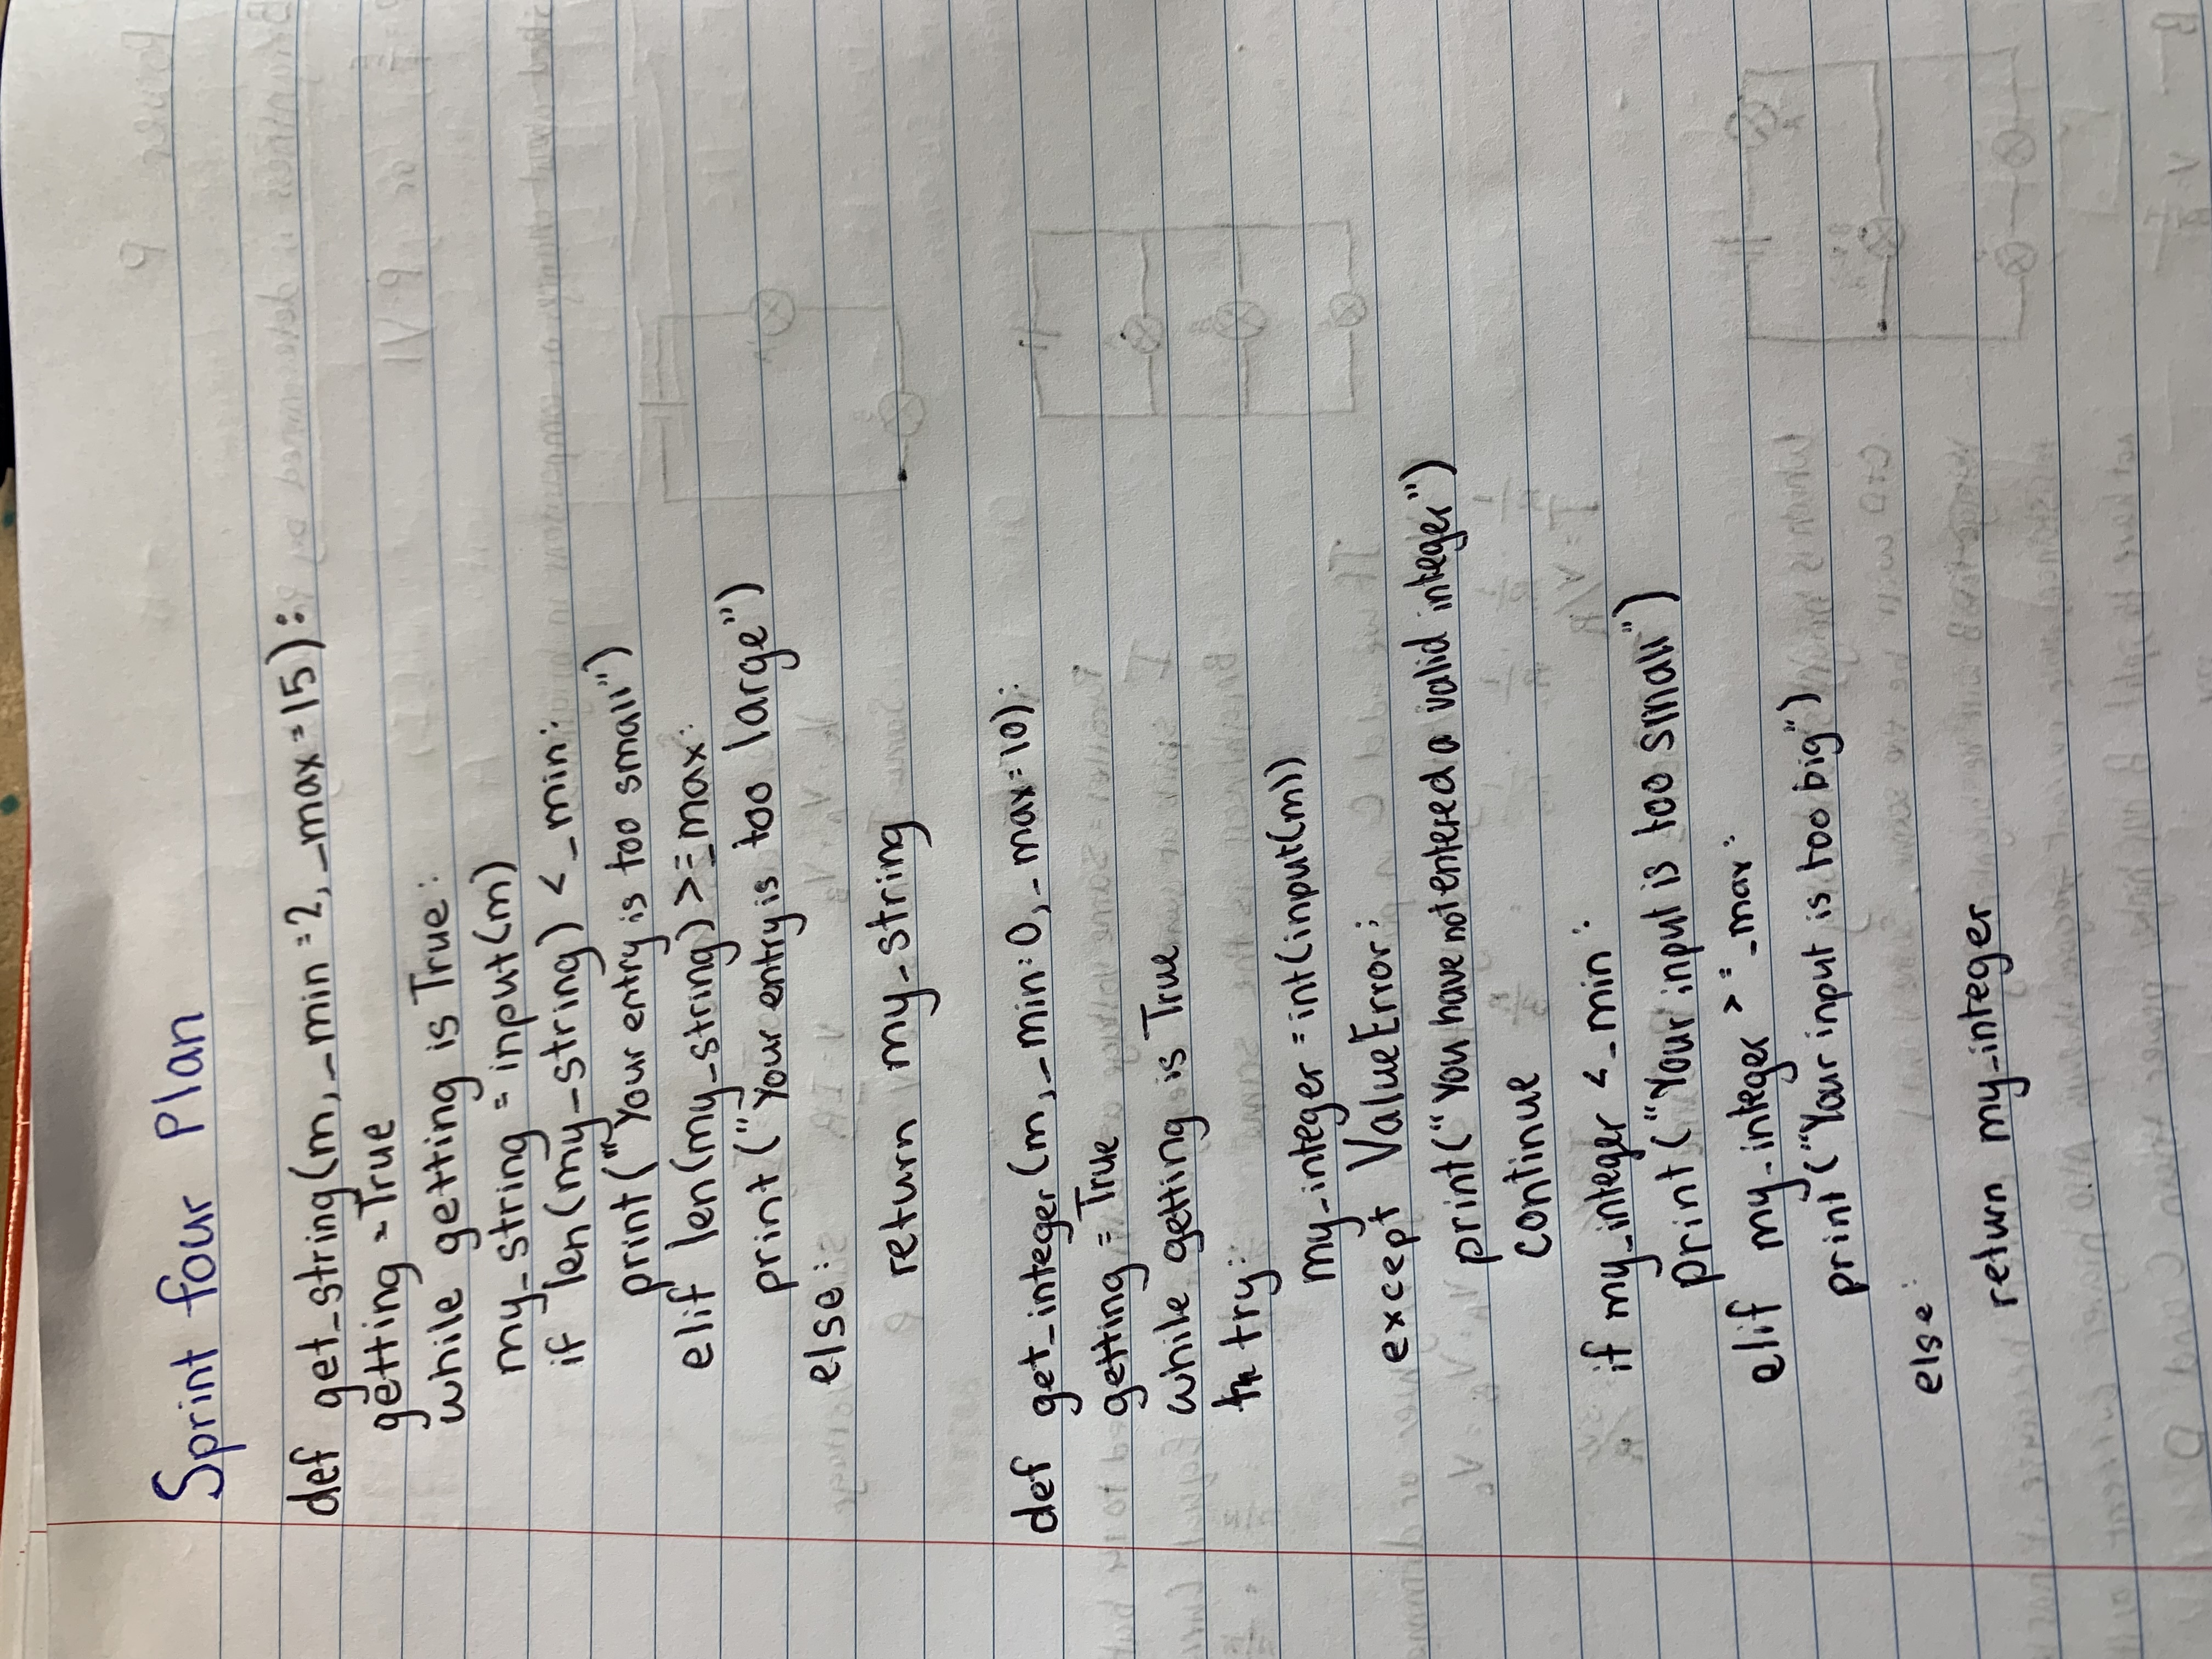 Sprint four Plan
def get_string(m, _min=2, _max=15):
getting = True
while getting is True:
my_string = input(m)
if len(my_string) < _min:
print("Your entry is too small")
elif len(my_string) >= _max:
print("Your entry is too large")
else:
return my_string
def get_integer(m, _min=0, _max=10):
getting = True
while getting is True
try:
my_integer = int(input(m))
except ValueError:
print("You have not entered a valid integer")
continue
if my_integer < _min:
print("Your input is too small")
elif my_integer >= _max:
print("Your input is too big")
else:
return my_integer